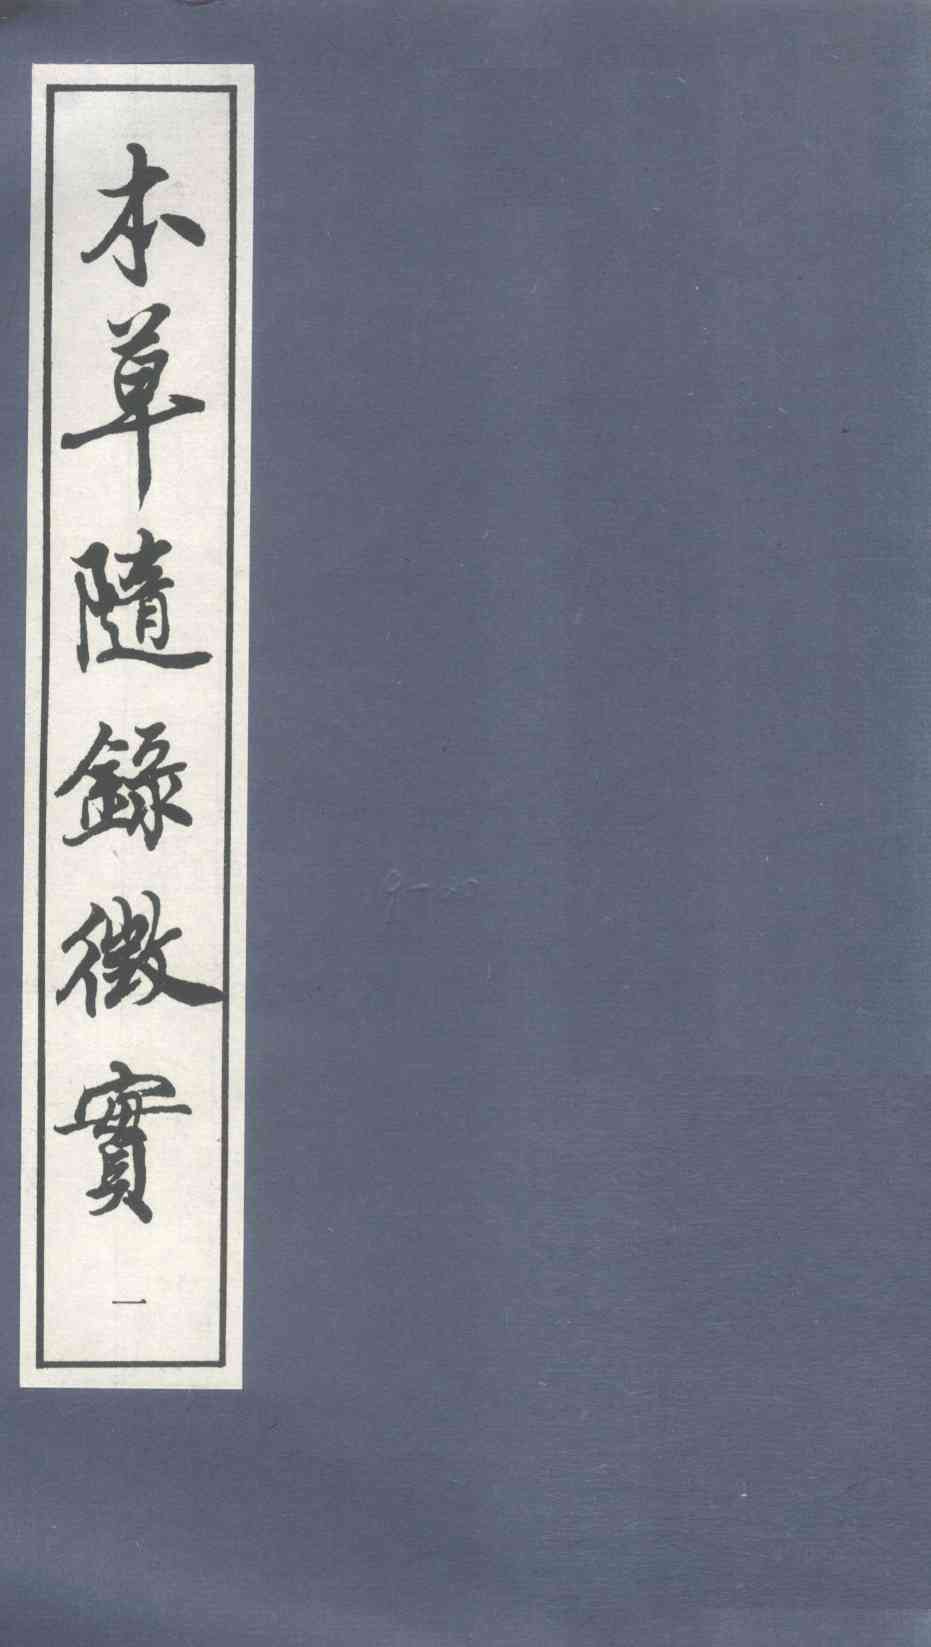 本草隨錄徵實
一